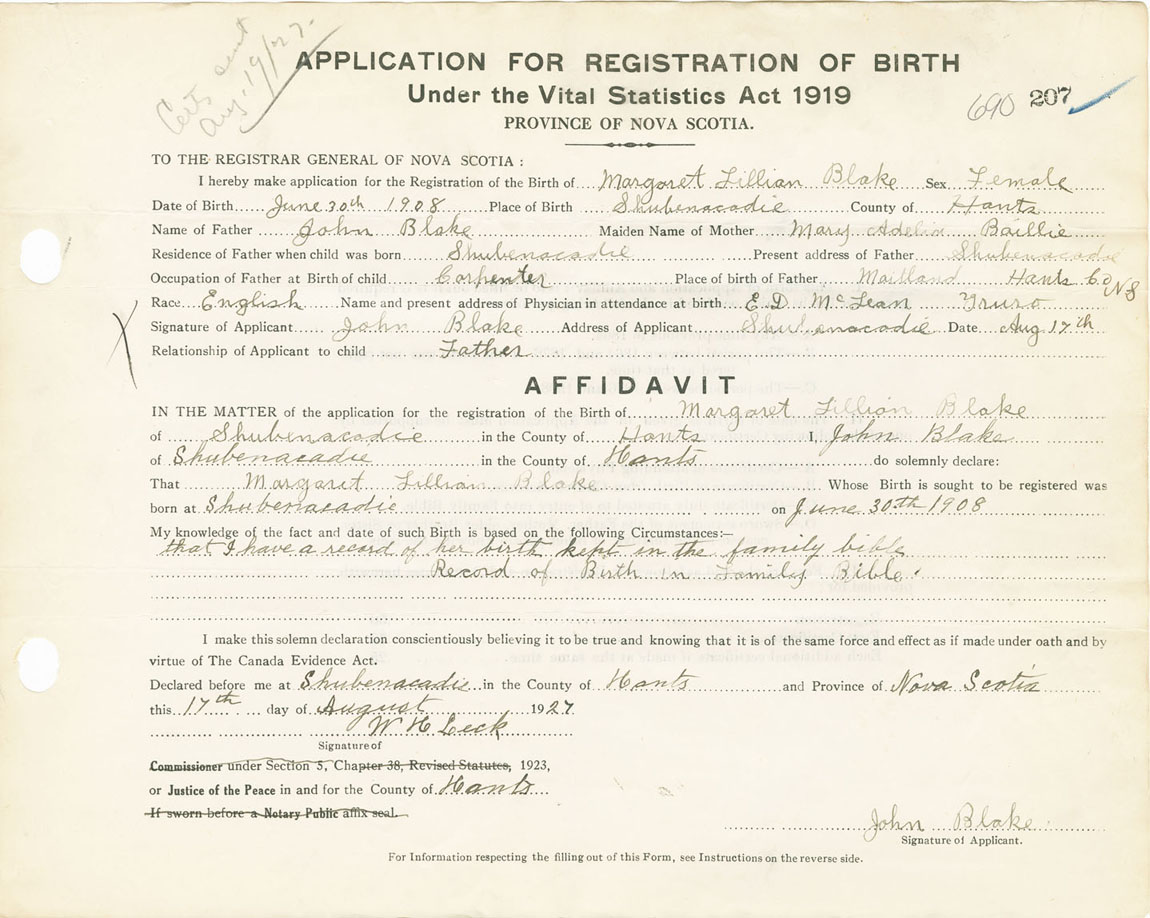 Certs sent
Aug. 19/27.
APPLICATION FOR REGISTRATION OF BIRTH
Under the Vital Statistics Act 1919
690 207
PROVINCE OF NOVA SCOTIA.
TO THE REGISTRAR GENERAL OF NOVA SCOTIA :
I hereby make application for the Registration of the Birth of Margaret Lillian Blake Sex Female
Date of Birth June 30th 1908 Place of Birth Shubenacadie County of Hants
Name of Father John Blake Maiden Name of Mother Mary Adelia Baillie
Residence of Father when child was born Shubenacadie Present address of Father Shubenacadie
Occupation of Father at Birth of child Carpenter Place of birth of Father Maitland Hants Co NS
Race English Name and present address of Physician in attendance at birth E D McLean Truro
Signature of Applicant John Blake Address of Applicant Shubenacadie Date Aug 17th
Relationship of Applicant to child Father
AFFIDAVIT
IN THE MATTER of the application for the registration of the Birth of Margaret Lillian Blake
of Shubenacadie in the County of Hants I, John Blake
of Shubenacadie in the County of Hants do solemnly declare:
That Margaret Lillian Blake Whose Birth is sought to be registered was
born at Shubenacadie on June 30th 1908
My knowledge of the fact and date of such Birth is based on the following Circumstances:—
that I have a record of her birth kept in the family bible
Record of Birth in Family Bible.
I make this solemn declaration conscientiously believing it to be true and knowing that it is of the same force and effect as if made under oath and by
virtue of The Canada Evidence Act.
Declared before me at Shubenacadie in the County of Hants and Province of Nova Scotia
this 17th day of August 1927
W H Leck
Signature of
Commissioner under Section 5, Chapter 38, Revised Statutes, 1923,
or Justice of the Peace in and for the County of Hants
If sworn before a Notary Public affix seal.
John Blake
Signature of Applicant.
For Information respecting the filling out of this Form, see Instructions on the reverse side.